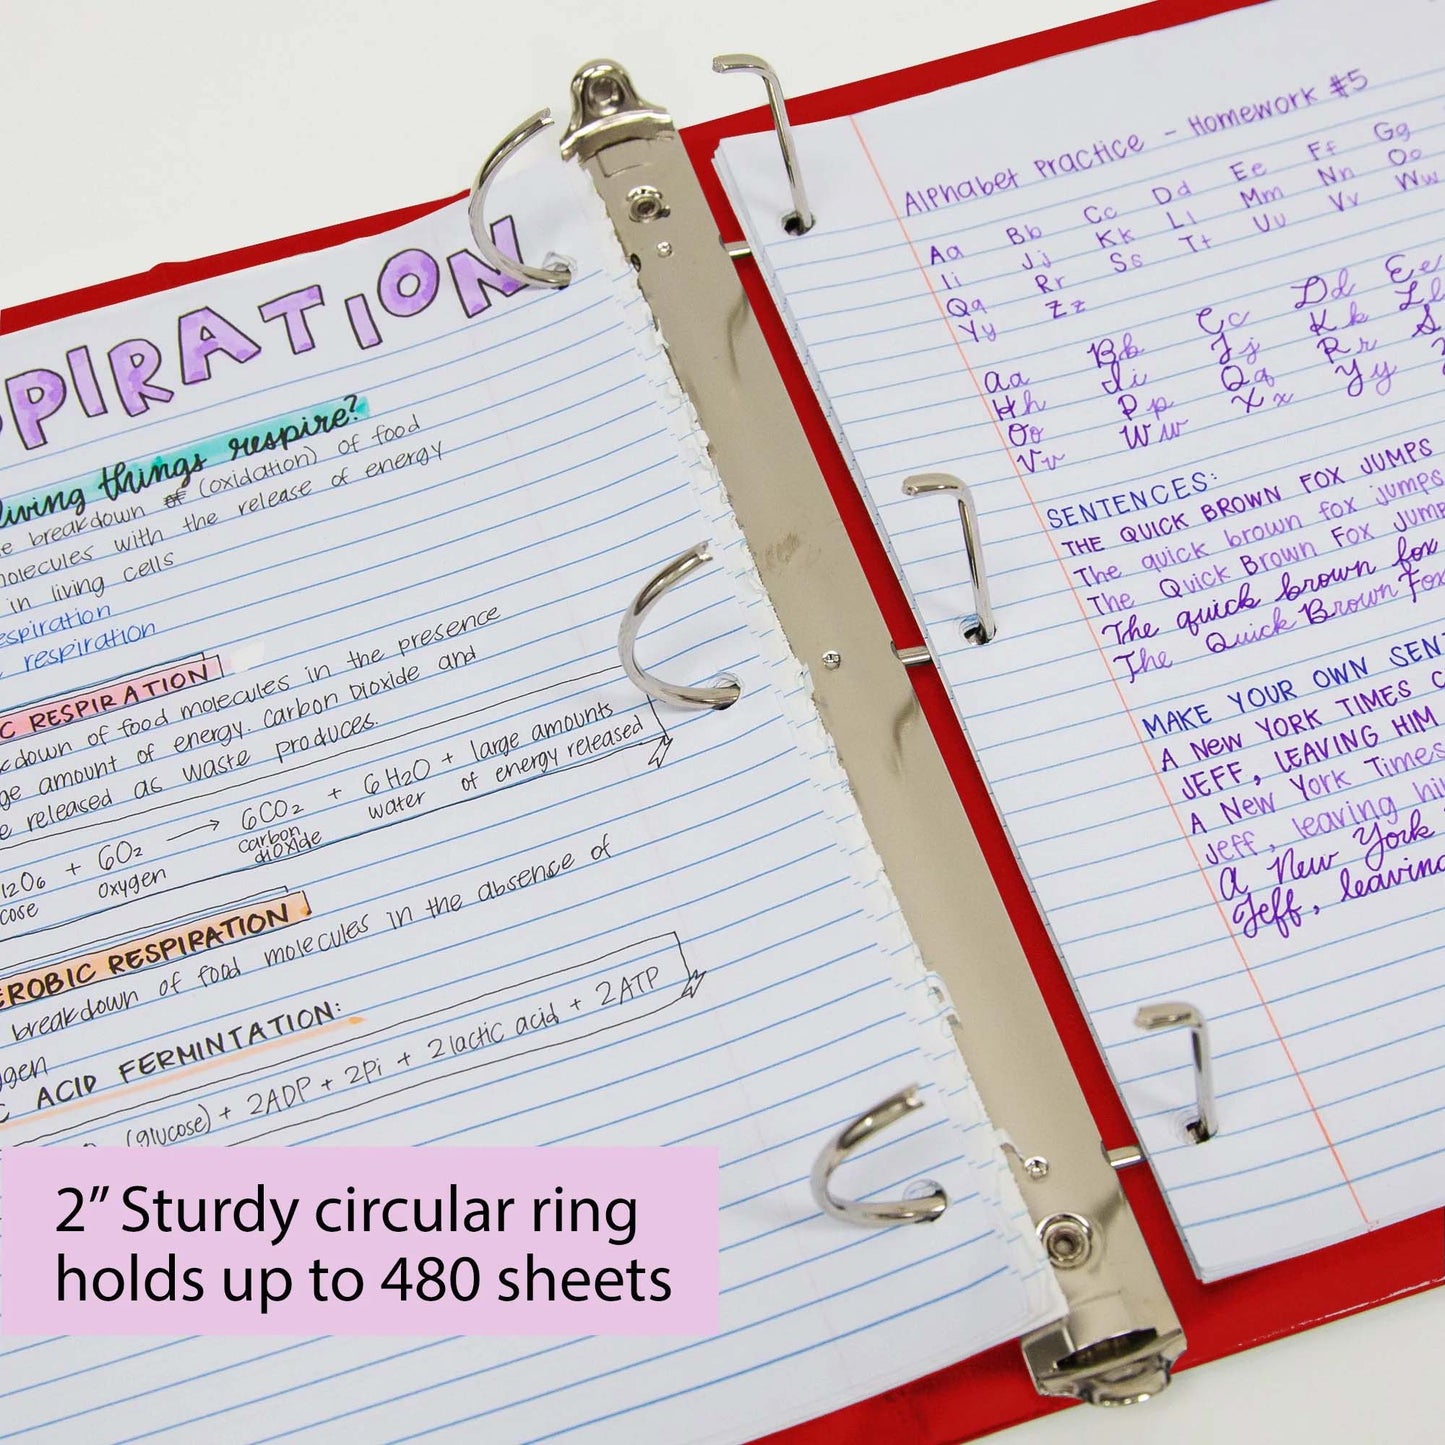 PIRATION
living things respire?
breakdown of (oxidation) of food
molecules with the release of energy
in living cells
respiration
respiration
RESPIRATION
down of food molecules in the presence
amount of energy. Carbon Dioxide and
released as waste produces.
+ 6O2 → 6CO2 + 6H2O + large amounts
oxygen carbon dioxide water of energy released
EROBIC RESPIRATION
breakdown of food molecules in the absence of
gen
C ACID FERMINTATION:
(glucose) + 2ADP + 2Pi + 2 lactic acid + 2ATP
2” Sturdy circular ring
holds up to 480 sheets
Alphabet Practice - Homework #5
Aa Bb Cc Dd Ee Ff Gg
Ii Jj Kk Ll Mm Nn Oo
Qq Rr Ss Tt Uu Vv Ww
Yy Zz
Aa Bb Cc Dd Ee
Hh Ii Jj Kk Ll
Oo Pp Qq Rr S
Vv Ww Xx Yy
SENTENCES:
THE QUICK BROWN FOX JUMPS
The quick brown fox jumps
The Quick Brown Fox Jump
The quick brown fox
The Quick Brown Fox
MAKE YOUR OWN SENT
A NEW YORK TIMES C
JEFF, LEAVING HIM
A New York Times
Jeff, leaving hi
A New York
Jeff, leaving